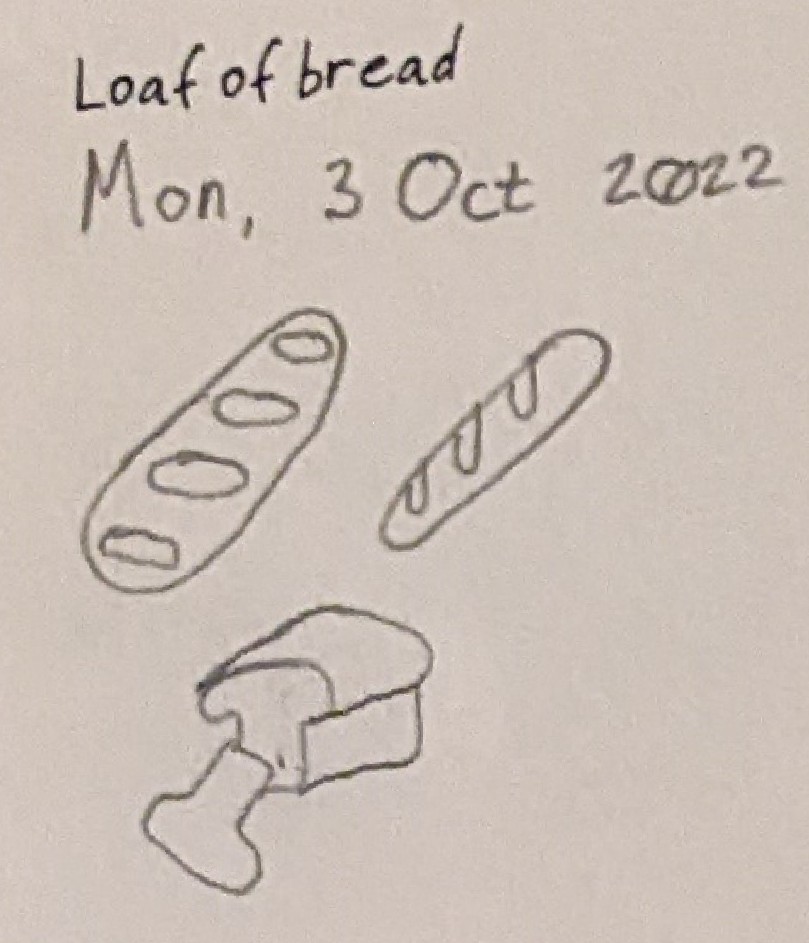 Loaf of bread
Mon, 3 Oct 2022